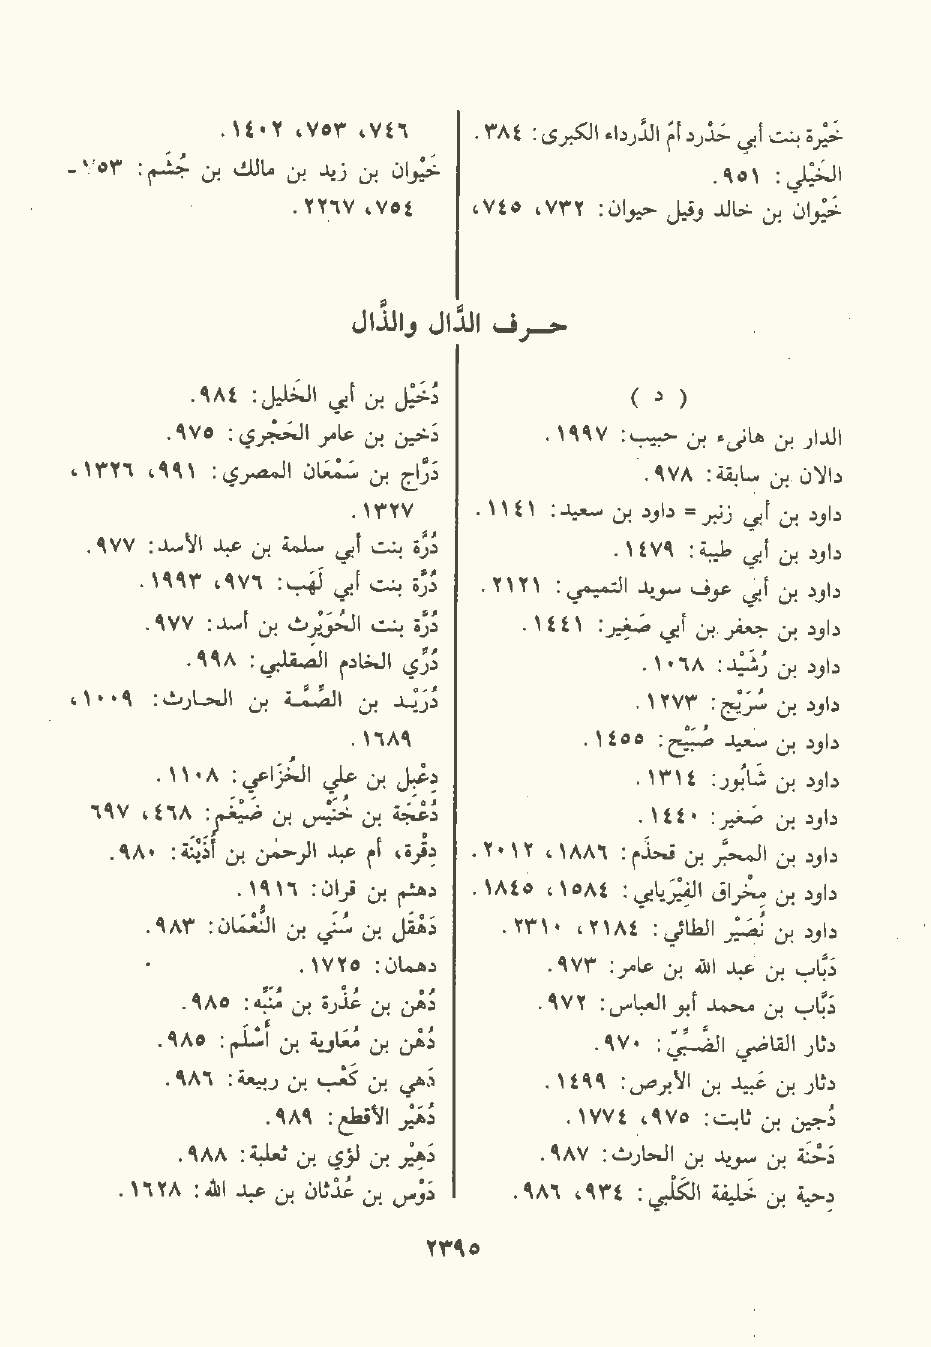 خَيْرة بنت أبي حَدْرد أمّ الدَّرداء الكبرى: ٣٨٤.
الخَيْلي: ٩٥١.
خَيْوان بن خالد وقيل حيوان: ٧٣٢، ٧٤٥،
٧٤٦، ٧٥٣، ١٤٠٢.
خَيْوان بن زيد بن مالك بن جُشَم: ٧٥٣ -
٧٥٤، ٢٢٦٧.
حـرف الدَّال والذَّال
( د )
الدار بن هانىء بن حبيب: ١٩٩٧.
دالان بن سابقة: ٩٧٨.
داود بن أبي زنبر = داود بن سعيد: ١١٤١.
داود بن أبي طيبة: ١٤٧٩.
داود بن أبي عوف سويد التميمي: ٢١٢١.
داود بن جعفر بن أبي صَغِير: ١٤٤١.
داود بن رُشَيْد: ١٠٦٨.
داود بن سُرَيْج: ١٢٧٣.
داود بن سعيد صُبَيْح: ١٤٥٥.
داود بن شَابُور: ١٣١٤.
داود بن صَغير: ١٤٤٠.
داود بن المحبَّر بن قحذَم: ١٨٨٦، ٢٠١٢.
داود بن مِخْراق الفِيْرَيابي: ١٥٨٤، ١٨٤٥.
داود بن نُصَيْر الطائي: ٢١٨٤، ٢٣١٠.
دَبَّاب بن عبد الله بن عامر: ٩٧٣.
دَبَّاب بن محمد أبو العباس: ٩٧٢.
دثار القاضي الضَّـبِّيّ: ٩٧٠.
دثار بن عَبيد بن الأبرص: ١٤٩٩.
دُجين بن ثابت: ٩٧٥، ١٧٧٤.
دَحْنَة بن سويد بن الحارث: ٩٨٧.
دِحية بن خَليفة الكَلْبي: ٩٣٤، ٩٨٦.
دُخَيْل بن أبي الخَليل: ٩٨٤.
دَخين بن عامر الحَجْري: ٩٧٥.
دَرَّاج بن سَمْعَان المصري: ٩٩١، ١٣٢٦،
١٣٢٧.
دُرَّة بنت أبي سلمة بن عبد الأسد: ٩٧٧.
دُرَّة بنت أبي لَهَب: ٩٧٦، ١٩٩٣.
دُرَّة بنت الحُوَيْرِث بن أسد: ٩٧٧.
دُرِّي الخادم الصقلبي: ٩٩٨.
دُرَيْـد بن الصِّمَّـة بن الحـارث: ١٠٠٩،
١٦٨٩.
دِعْبِل بن علي الخُزَاعي: ١١٠٨.
دُعْجَة بن خُنَيْس بن ضَيْغَم: ٤٦٨، ٦٩٧
دِقْرة، أم عبد الرحمٰن بن أُذَيْنَة: ٩٨٠.
دهثم بن قران: ١٩١٦.
دَهْقَل بن سُنَي بن النُّعْمَان: ٩٨٣.
دهمان: ١٧٢٥.
دُهْن بن عُذْرة بن مُنَبِّه: ٩٨٥.
دُهْن بن مُعَاوية بن أَسْلَم: ٩٨٥.
دَهي بن كَعْب بن ربيعة: ٩٨٦.
دُهَيْر الأقطع: ٩٨٩.
دَهِيْر بن لؤي بن ثعلبة: ٩٨٨.
دَوْس بن عُدْثان بن عبد الله: ١٦٢٨.
٢٣٩٥